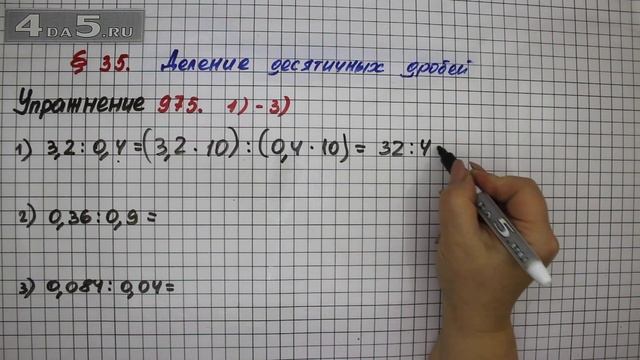 4DA5.RU
§ 35. Деление десятичных дробей
Упражнение 975. 1) - 3)
1) 3,2 : 0,4 = (3,2 · 10) : (0,4 · 10) = 32 : 4
2) 0,36 : 0,9 =
3) 0,084 : 0,04 =